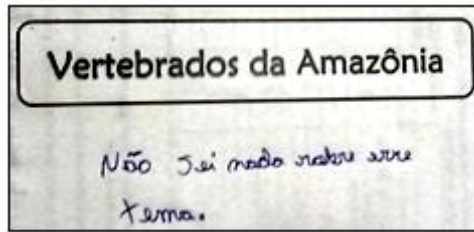 Vertebrados da Amazônia
Não sei nada sobre esse
tema.